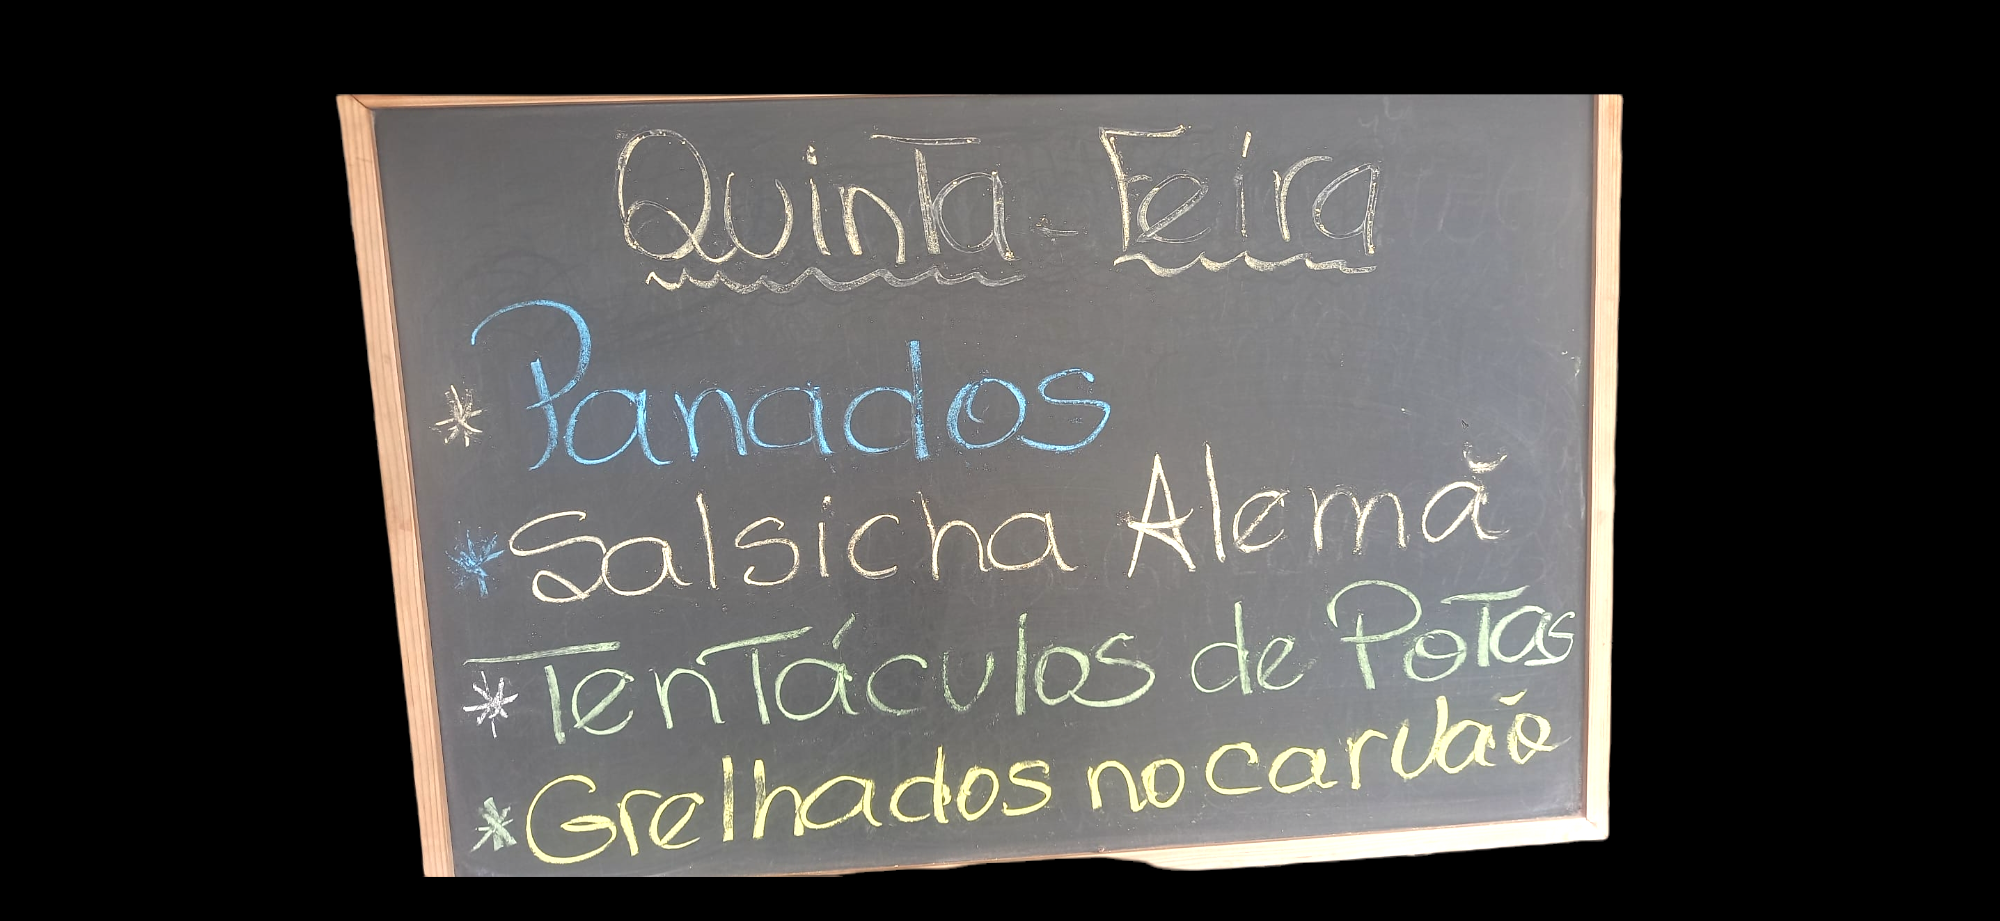 Quinta-Feira
* Panados
* Salsicha Alemã
* Tentáculos de Potas
* Grelhados no carvão